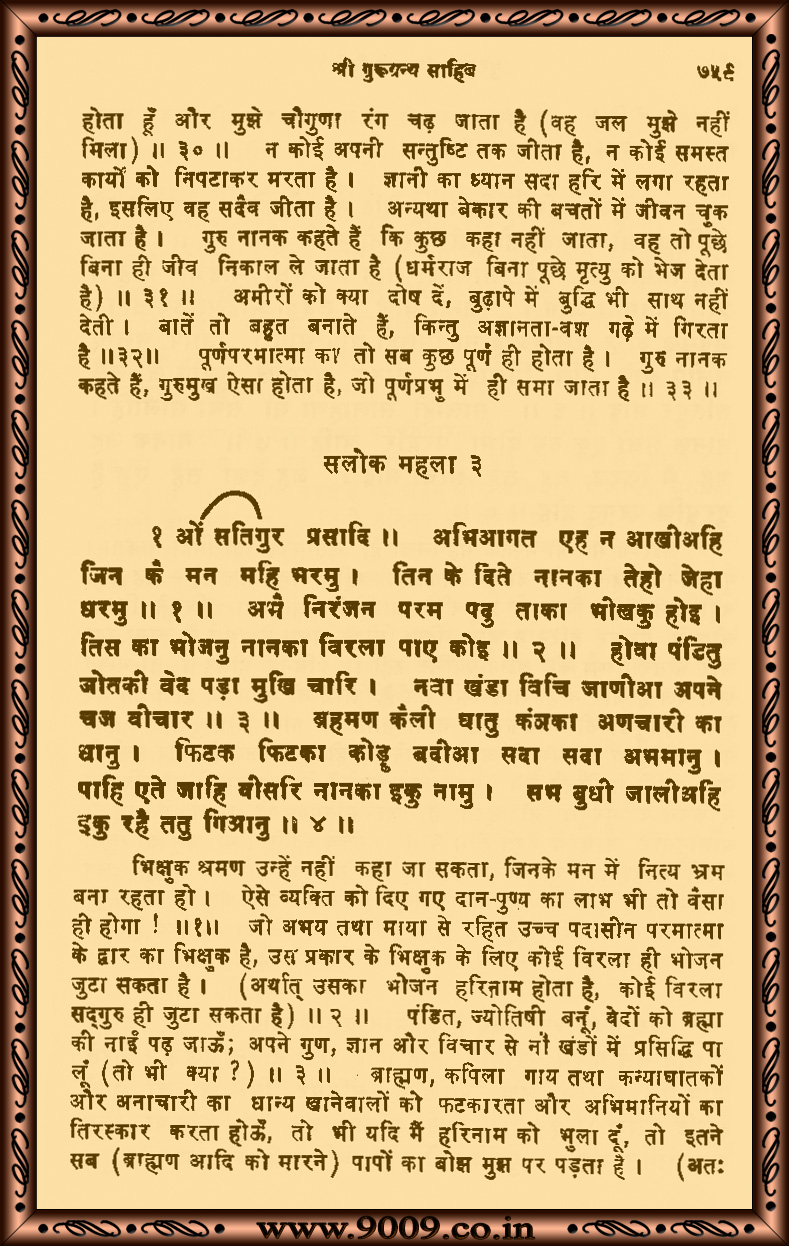 श्री गुरूग्रन्थ साहिब ७५९
होता हूँ और मुझे चौगुणा रंग चढ़ जाता है (वह जल मुझे नहीं
मिला) ॥ ३० ॥ न कोई अपनी सन्तुष्टि तक जीता है, न कोई समस्त
कार्यों को निपटाकर मरता है । ज्ञानी का ध्यान सदा हरि में लगा रहता
है, इसलिए वह सदैव जीता है । अन्यथा बेकार की बचतों में जीवन चुक
जाता है । गुरु नानक कहते हैं कि कुछ कहा नहीं जाता, वह तो पूछे
बिना ही जीव निकाल ले जाता है (धर्मराज बिना पूछे मृत्यु को भेज देता
है) ॥ ३१ ॥ अमीरों को क्या दोष दें, बुढ़ापे में बुद्धि भी साथ नहीं
देती । बातें तो बहुत बनाते हैं, किन्तु अज्ञानता-वश गढ़े में गिरता
है ॥३२॥ पूर्णपरमात्मा का तो सब कुछ पूर्ण ही होता है । गुरु नानक
कहते हैं, गुरुमुख ऐसा होता है, जो पूर्णप्रभु में ही समा जाता है ॥ ३३ ॥
सलोक महला ३
१ ओं सतिगुर प्रसादि ॥ अभिआगत एह न आखीअहि
जिन कै मन महि भरमु । तिन के दिते नानका तेहो जेहा
धरमु ॥ १ ॥ अभै निरंजन परम पदु ताका भीखकु होइ ।
तिस का भोजनु नानका विरला पाए कोइ ॥ २ ॥ होवा पंडितु
जोतकी वेद पड़ा मुखि चारि । नवा खंडा विचि जाणीआ अपने
चज वीचार ॥ ३ ॥ ब्रहमण कैली घातु कंञका अणचारी का
धानु । फिटक फिटका कोड़ू बदीआ सदा सदा अभमानु ।
पाहि एते जाहि वीसरि नानका इकु नामु । सभ बुधी जालीअहि
इकु रहै ततु गिआनु ॥ ४ ॥
भिक्षुक श्रमण उन्हें नहीं कहा जा सकता, जिनके मन में नित्य भ्रम
बना रहता हो । ऐसे व्यक्ति को दिए गए दान-पुण्य का लाभ भी तो वैसा
ही होगा ! ॥१॥ जो अभय तथा माया से रहित उच्च पदासीन परमात्मा
के द्वार का भिक्षुक है, उस प्रकार के भिक्षुक के लिए कोई विरला ही भोजन
जुटा सकता है । (अर्थात् उसका भोजन हरिनाम होता है, कोई विरला
सद्गुरु ही जुटा सकता है) ॥ २ ॥ पंडित, ज्योतिषी बनूँ, वेदों को ब्रह्मा
की नाईं पढ़ जाऊँ; अपने गुण, ज्ञान और विचार से नौ खंडों में प्रसिद्धि पा
लूं (तो भी क्या ?) ॥ ३ ॥ ब्राह्मण, कपिला गाय तथा कन्याघातकों
और अनाचारी का धान्य खानेवालों को फटकारता और अभिमानियों का
तिरस्कार करता होऊँ, तो भी यदि मैं हरिनाम को भुला दूं, तो इतने
सब (ब्राह्मण आदि को मारने) पापों का बोझ मुझ पर पड़ता है । (अतः
www.9009.co.in